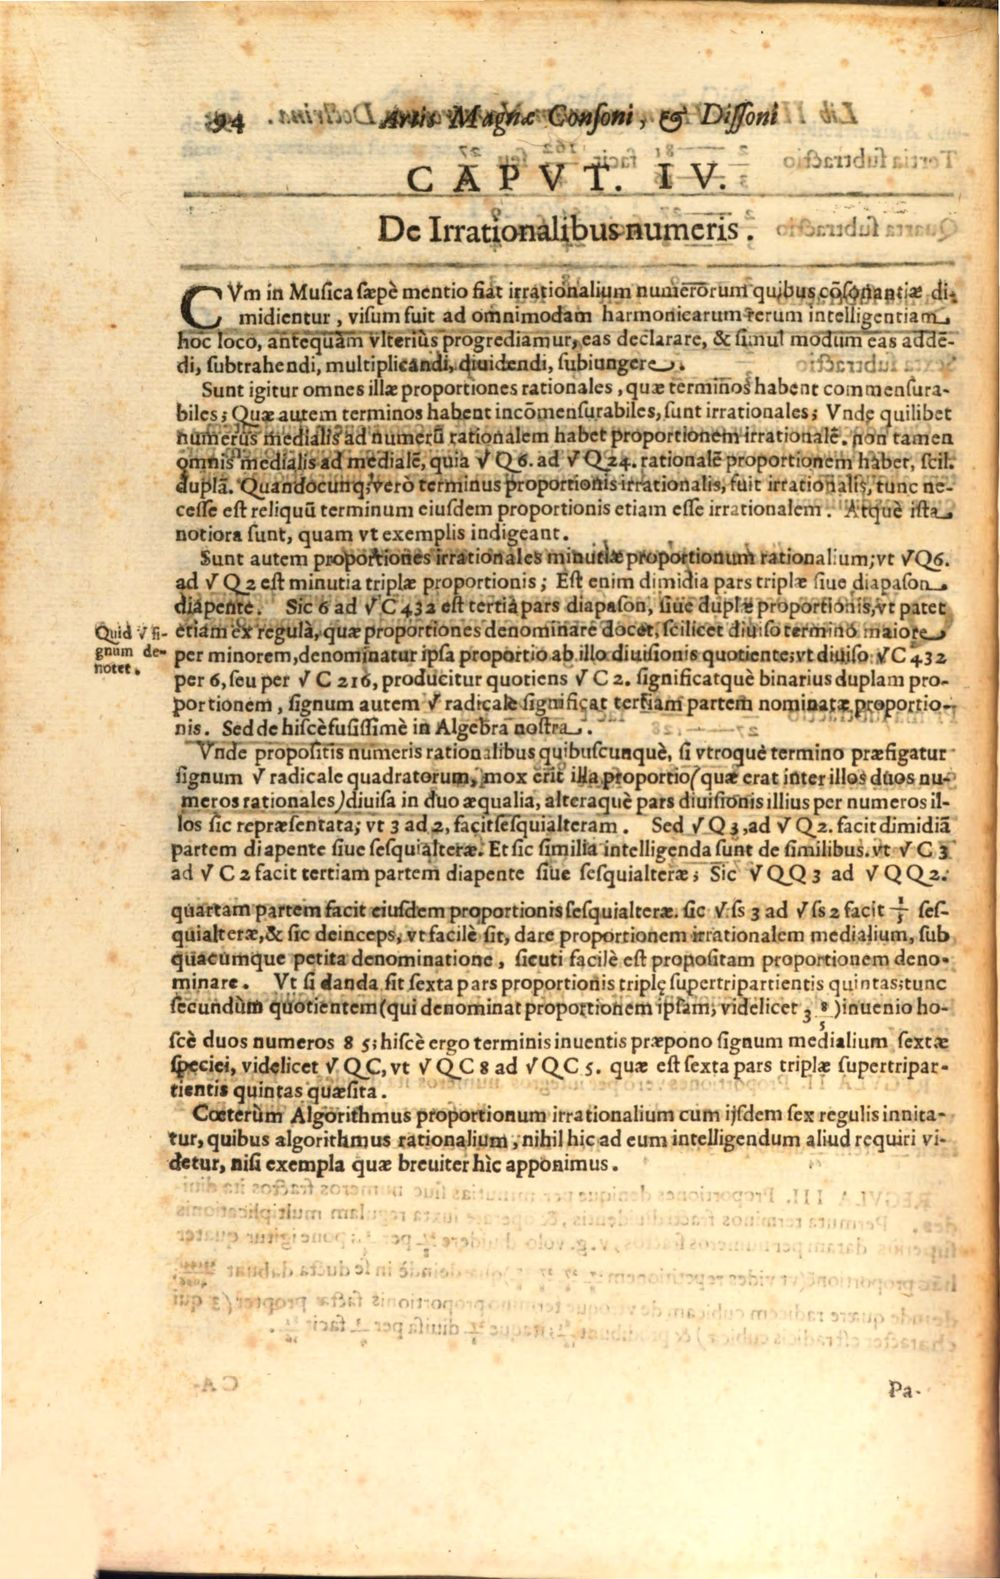 94 Artis Magnæ Consoni, & Dissoni
CAPVT. IV.
De Irrationalibus numeris.
CVm in Musica sæpè mentio fiat irrationalium numerorum quibus cõsonantiæ di-
midientur, visum fuit ad omnimodam harmonicarum rerum intelligentiam
hoc loco, antequàm vlteriùs progrediamur, eas declarare, & simul modum eas adde-
di, subtrahendi, multiplicandi, diuidendi, subiungere.
Sunt igitur omnes illæ proportiones rationales, quæ terminos habent commensura-
biles; Quæ autem terminos habent incõmensurabiles, sunt irrationales; Vnde quilibet
numerus medialis ad numerũ rationalem habet proportionem irrationalẽ. non tamen
omnis medialis ad medialẽ, quia √Q6. ad √Q24. rationalẽ proportionem habet, scil.
duplã. Quandocunq; verò terminus proportionis irrationalis, fuit irrationalis, tunc ne-
cesse est reliquũ terminum eiusdem proportionis etiam esse irrationalem. Atquè ista
notiora sunt, quam vt exemplis indigeant.
Sunt autem proportiones irrationales minutiæ proportionum rationalium; vt √Q6.
ad √Q2 est minutia triplæ proportionis; Est enim dimidia pars triplæ siue diapason
diapente. Sic 6 ad √C432 est tertia pars diapason, siue duplæ proportionis, vt patet
Quid √ si-
gnum de-
notet.
etiam ex regulà, quæ proportiones denominare docet, scilicet diuiso termino maiore
per minorem, denominatur ipsa proportio ab illo diuisionis quotiente; vt diuiso √C432
per 6, seu per √C216, producitur quotiens √C2. significatquè binarius duplam pro-
portionem, signum autem √ radicale significat tertiam partem nominatæ proportio-
nis. Sed de hiscè fusissimè in Algebra nostra.
Vnde propositis numeris rationalibus quibuscunquè, si vtroquè termino præfigatur
signum √ radicale quadratorum, mox erit illa proportio (quæ erat inter illos duos nu-
meros rationales) diuisa in duo æqualia, alteraquè pars diuisionis illius per numeros il-
los sic repræsentata; vt 3 ad 2, facit sesquialteram. Sed √Q3, ad √Q2. facit dimidiã
partem diapente siue sesquialteræ. Et sic similia intelligenda sunt de similibus. vt √C3
ad √C2 facit tertiam partem diapente siue sesquialteræ; Sic √QQ3 ad √QQ2.
quartam partem facit eiusdem proportionis sesquialteræ. sic √ss 3 ad √ss 2 facit 1/5 ses-
quialteræ, & sic deinceps, vt facilè sit, dare proportionem irrationalem medialium, sub
quacumque petita denominatione, sicuti facilè est propositam proportionem deno-
minare. Vt si danda sit sexta pars proportionis triplę supertripartientis quintas: tunc
secundùm quotientem (qui denominat proportionem ipsam; videlicet 3 8/5) inuenio ho-
scè duos numeros 8 5; hiscè ergo terminis inuentis præpono signum medialium sextæ
speciei, videlicet √QC, vt √QC8 ad √QC5. quæ est sexta pars triplæ supertripar-
tientis quintas quæsita.
Cœterùm Algorithmus proportionum irrationalium cum ijsdem sex regulis innita-
tur, quibus algorithmus rationalium, nihil hic ad eum intelligendum aliud requiri vi-
detur, nisi exempla quæ breuiter hìc apponimus.
Pa-